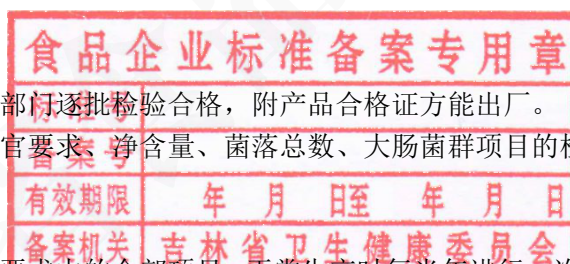 食品企业标准备案专用章
标准号
部门逐批检验合格，附产品合格证方能出厂。
官要求、净含量、菌落总数、大肠菌群项目的
备案号
有效期限 年 月 日至 年 月 日
备案机关 吉林省卫生健康委员会